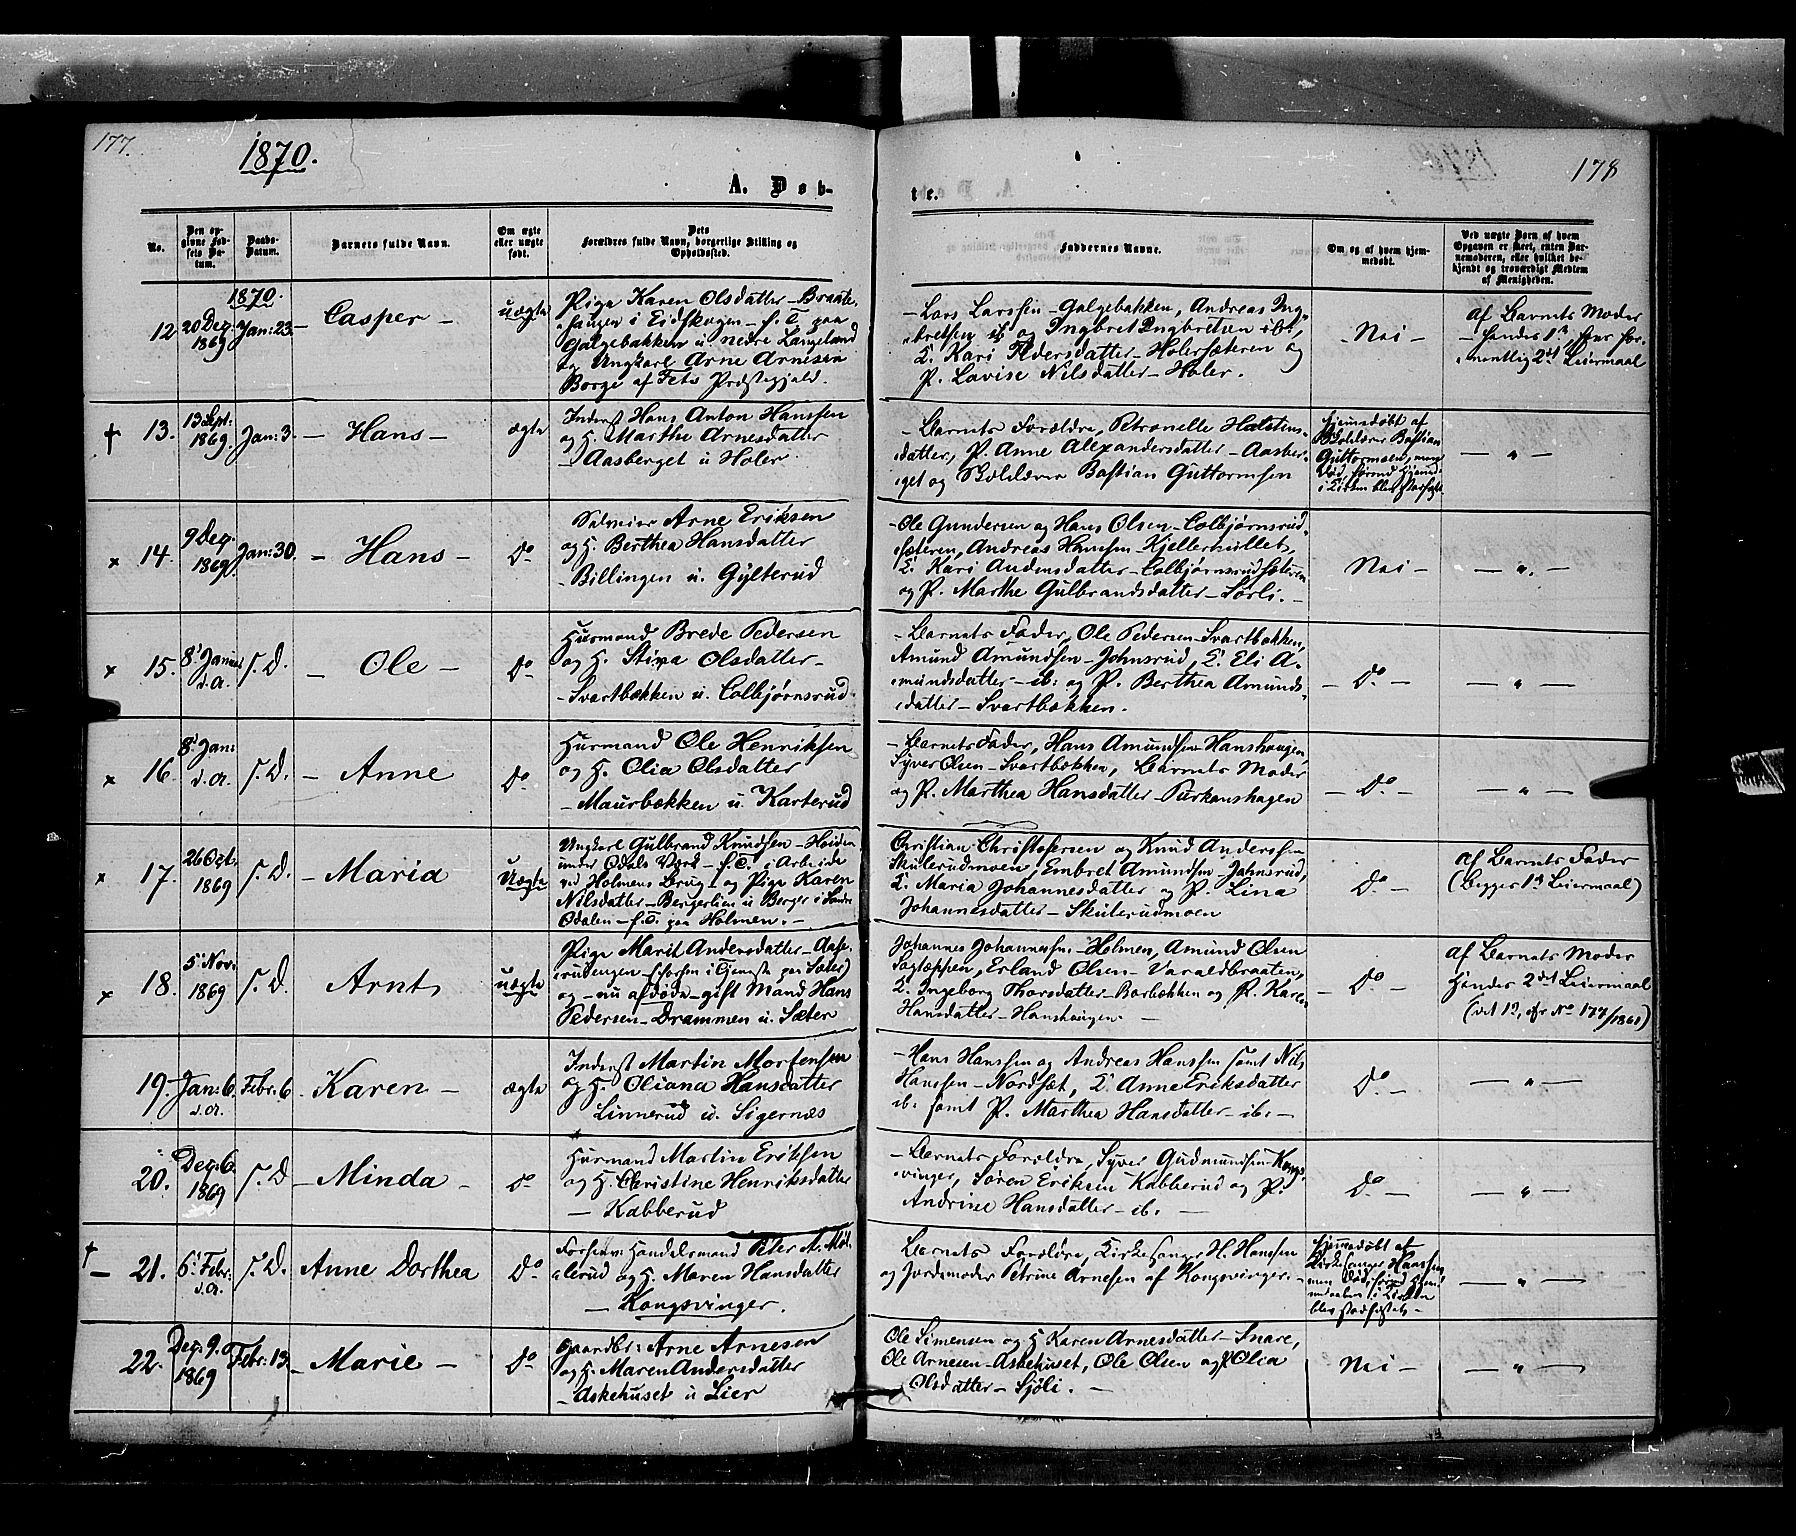 177.
1870.
178
A. Døb-
te.
No.
Den op-
givne Fød-
sels Da-
tum.
Daabs-
Datum.
Barnets fulde Navn.
Om ægte
eller uægte
født.
Dets
Forældres fulde Navn, borgerlige Stilling og
Opholdssted.
Faddernes Navne.
Om og af hvem hjem-
medøbt.
Ved uægte Børn af hvem
Opgaven er skeet, enten Bar-
nemoderen, eller hvilket be-
kjendt og troværdigt Medlem
af Menigheden.
1870.
12
20 Dec:
1869
Jan: 23.
Casper –
uægte
Pige Karen Olsdatter – Braate-
haugen i Eidskogen – f. T. paa
Galgebakken u nedre Langeland
og Ungkarl Arne Arnesen
Borge af Fets Præstegjeld.
Lars Larssen – Galgebakken, Andreas Ing-
bretsen ib og Ingbret Ingbretsen ib:,
K. Kari Pedersdatter – Holersæteren og
P. Lavise Nilsdatter – Holer.
– Nei –
af Barnets Moder
– hendes 1ste, hans for-
mentlig 2det Leiermaal
†
13.
13 Sept:
1869.
Jan: 3.
– Hans –
ægte
Inderst Hans Anton Hanssen
og H. Marthe Arnesdatter
– Aasberget u Holer
– Barnets Forældre, Petronelle Halstens-
datter, P. Anne Alexandersdatter – Aasber-
get og Skolelærer Bastian Guttormsen
Hjemmedøbt af
Skolelærer Bastian
Guttormsen, men
død, førend Hjemmed.
i Kirken blev stadfæstet
– " –
x
14.
9 Dec.
1869.
Jan: 30.
– Hans –
Do
Selveier Arne Eriksen
og H. Berthea Hansdatter
– Billingen u. Gylterud
– Ole Gundersen og Hans Olsen – Colbjørnsrud-
sæteren, Andreas Hanssen – Kjellerhullet,
K. Kari Andersdatter – Colbjørnsrudsæteren
og P. Marthe Gulbrandsdatter – Sørli. –
Nei –
– " –
x
15.
8 Januar
d. A.
S. D.
– Ole –
Do
Huusmand Brede Pedersen
og H. Stina Olsdatter –
– Svartbækken u. Colbjørnsrud
– Barnets Fader, Ole Pedersen – Svartbækken,
Amund Amundsen – Johnsrud, K. Eli A-
mundsdatter – ib: og P. Berthea Amunds-
datter – Svartbækken.
– Do –
– " –
x
16.
8 Jan:
d. A.
S. D.
– Anne
Do
Huusmand Ole Henriksen
og H. Olia Olsdatter
– Maurbækken u. Karterud
– Barnets Fader, Hans Amundsen – Hanshaugen,
Syver Olsen – Svartbækken, Barnets Moder
og P. Marthea Hansdatter – Purkanshagen
– Do –
– " –
x
17.
26 Oct.
1869
S. D.
– Maria
Uægte
Ungkarl Gulbrand Knudsen – Heiden
under Odals Værk – f. T. i Arbeide
ved Holmens Brug – og Pige Karen
Nilsdatter – Bergerlien u Berger i Søndre
Odalen – f. T. paa Holmen. –
Christian Christophersen og Knud Anderssen
Skulerudmoen, Embret Amundsen – Johnsrud,
K. Maria Johannesdatter og P. Lina
Johannesdatter – Skulerudmoen
Do –
Af Barnets Fader
(Begges 1ste Leiermaal)
x
18.
5 Nov:
1869
S. D.
Arnt
uægte
Pige Marit Andersdatter – Aase-
rudengen – (forhen i Tjeneste paa Sæter)
og – nu afdøde – gift Mand Hans
Pedersen – Drammen u. Sæter
Johannes Johannessen – Holmen, Amund Olsen
Sagtoppen, Erland Olsen – Varaldbraaten,
K. Ingeborg Thorsdatter – Borbækken og P. Karen
Hansdatter – Hanshaugen. –
– Do –
af Barnets Moder
Hendes 2det Leiermaal
(ved 1ste, cfr No 177/1861)
19.
Jan: 6.
d. A.
Febr: 6
– Karen –
ægte
Inderst Martin Mortensen
og H. Oliana Hansdatter
Linnerud u. Sigernæs
– Hans Hanssen og Andreas Hanssen samt Nils
Hanssen – Nordsæt, K. Anne Eriksdatter
ib: samt P. Marthea Hansdatter – ib: –
Do –
– " –
20.
Dec: 6.
1869
S. D
– Minda –
Do
Huusmand Martin Eriksen
og H. Christine Henriksdatter
– Kabberud
– Barnets Forældre, Syver Gudmundsen – Kongs-
vinger, Søren Eriksen Kabberud og P.
Andrine Hansdatter – ib: –
Do –
– " –
†
– 21.
6 Febr:
d. A.
S. D.
Anne Dorthea
Do
Forhenv: Handelsmand Peter A. Møl-
lerud og H. Maren Hansdatter
– Kongsvinger.
Barnets Forældre, Kirkesanger H. Hanssen
og Jordemoder Petrine Arnesen af Kongsvinger. –
Hjemmedøbt af
Kirkesanger Hanssen,
men død, førend Hjem-
medaaben i Kirken
blev stadfæstet –
– " –
22.
Dec. 9.
1869
Febr: 13.
– Marie –
Do
Gaardbr: Arne Arnesen
og H. Maren Andersdatter
– Askehuset u Lier
Ole Simensen og H Karen Arnesdatter – Snare,
Ole Arnesen – Askehuset, Ole Olsen og P. Olia
Olsdatter – Sjøli. –
Nei –
– " –